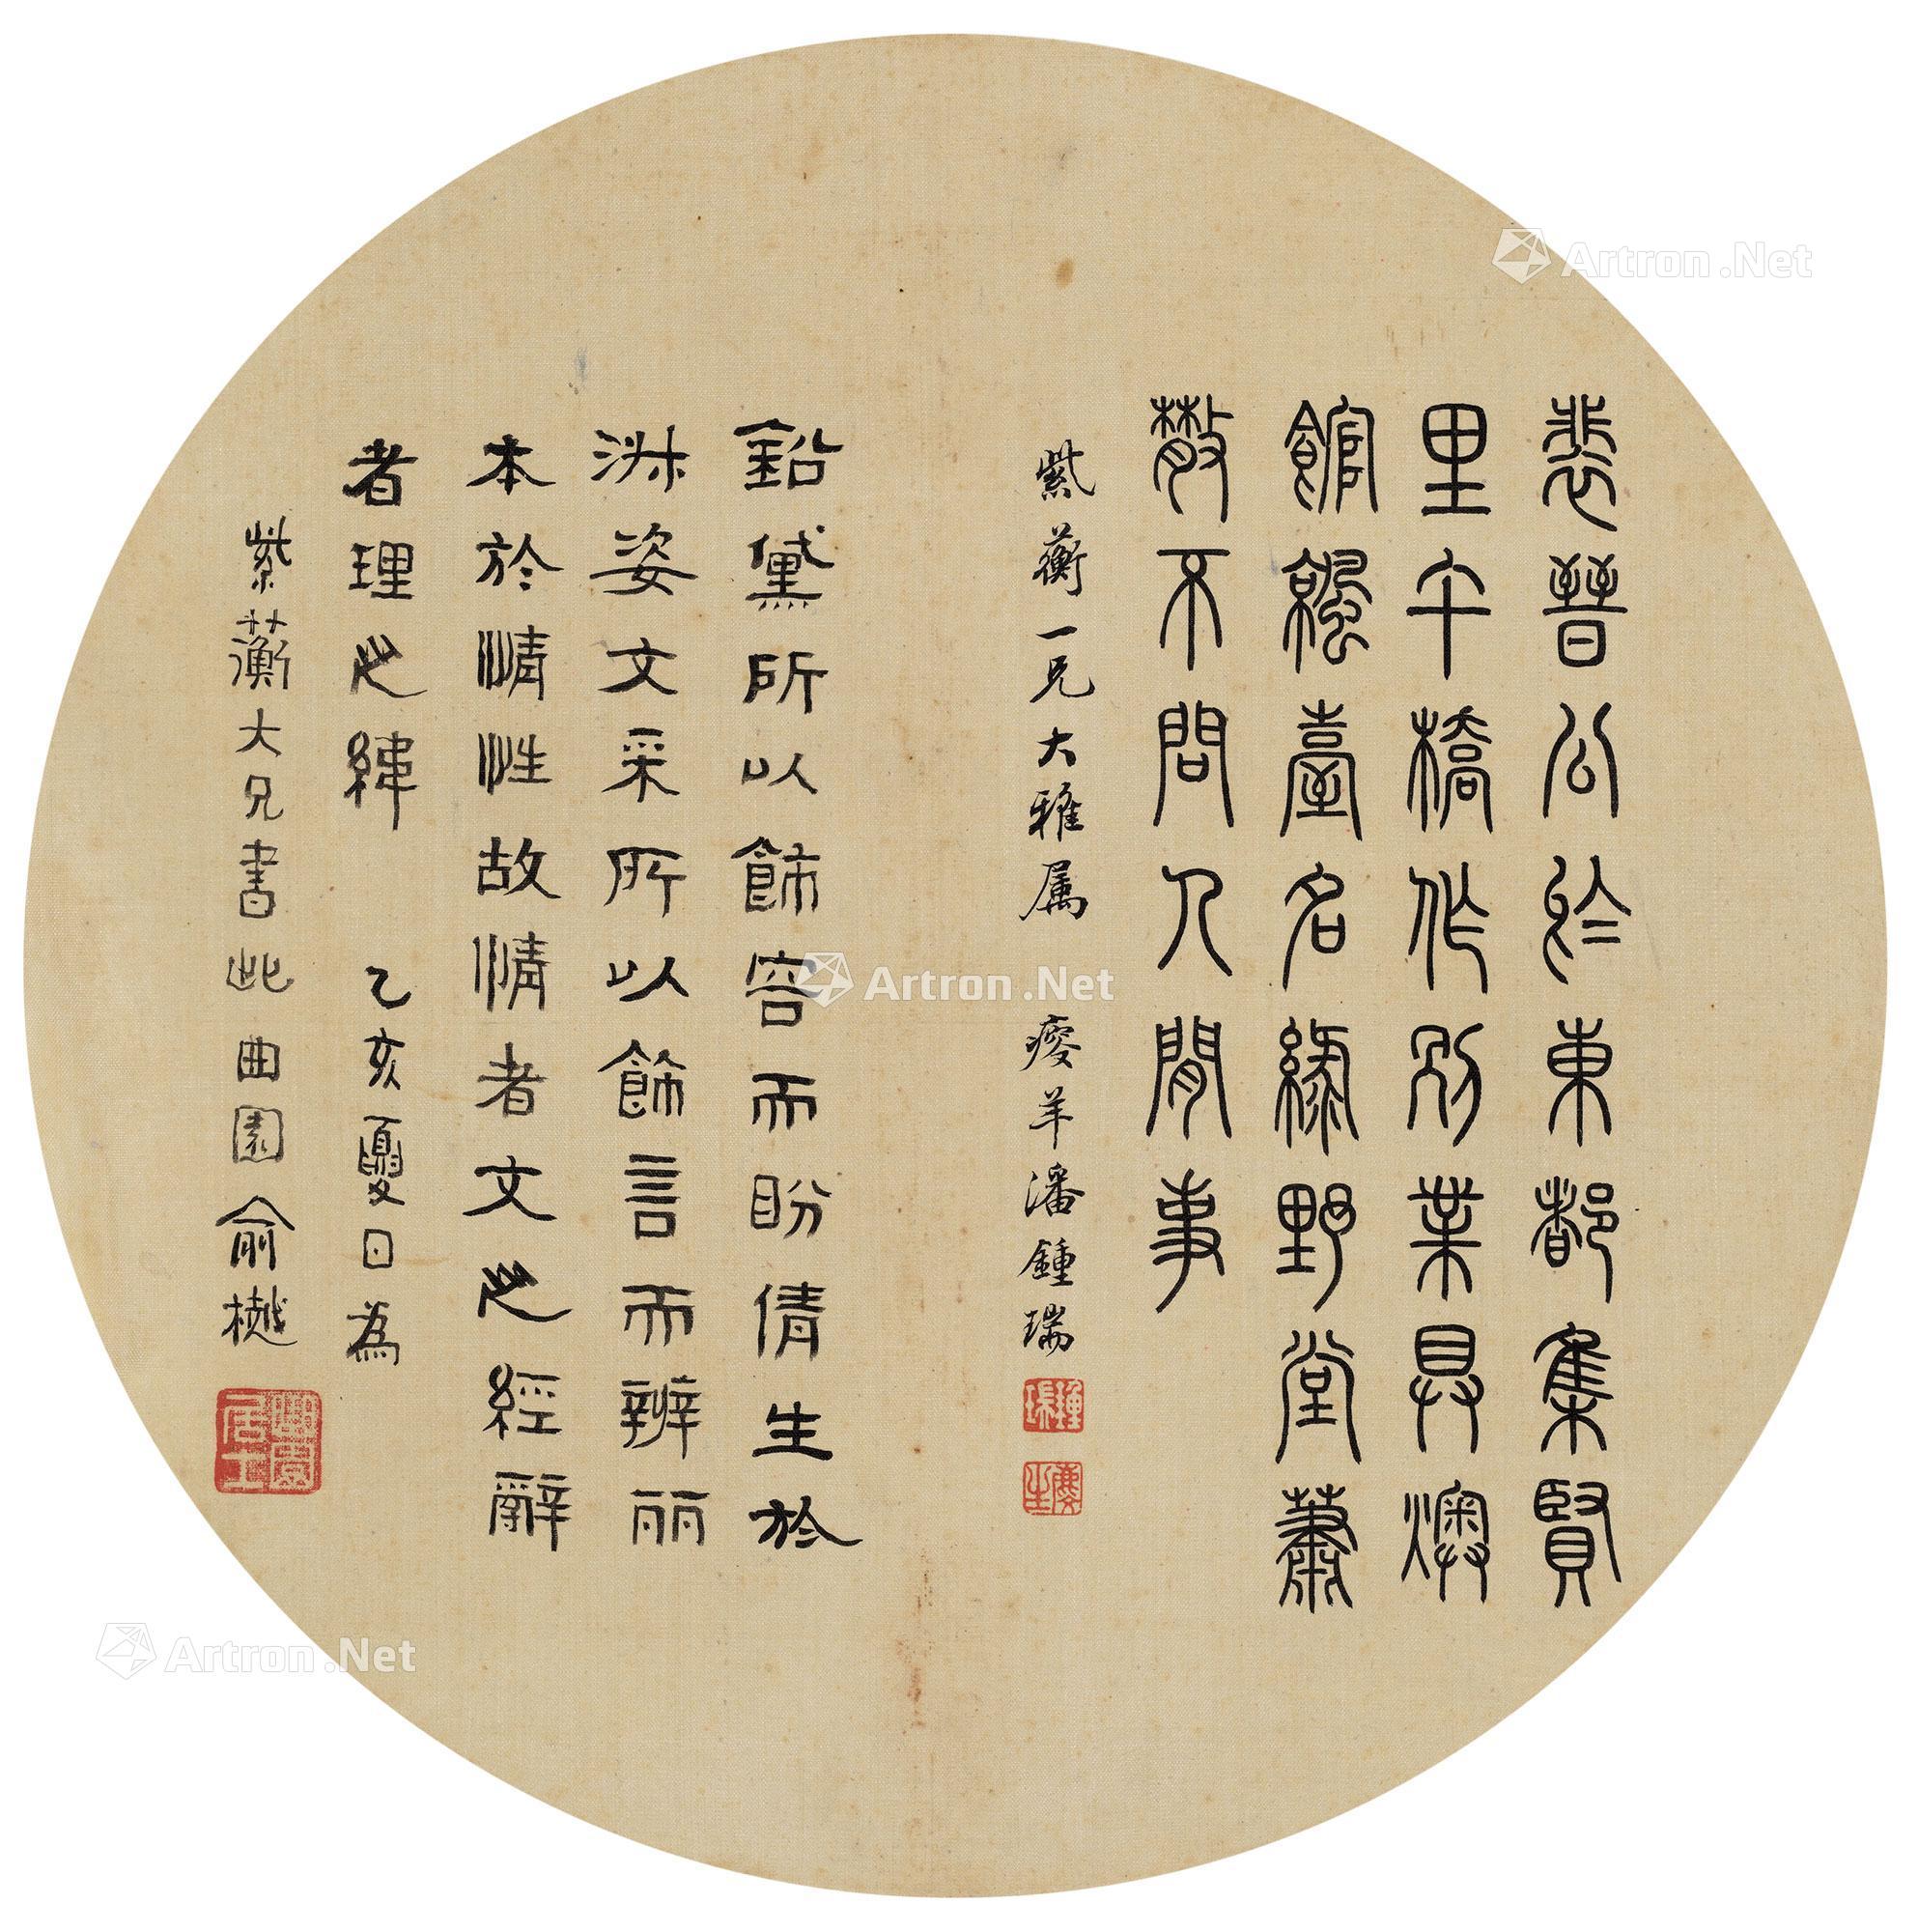 裴晉公於東都集賢
里午橋作別業具燠
館涼臺名綠野堂蕭
散不問人間事
紫蘅一兄大雅属 瘦羊潘鍾瑞
鉛黛所以飾容而盼倩生於
淑姿文采所以飾言而辨丽
本於情性故情者文之經辭
者理之緯 乙亥夏日為
紫蘅大兄書此 曲園俞樾
Artron.Net
Artron.Net
Artron.Net